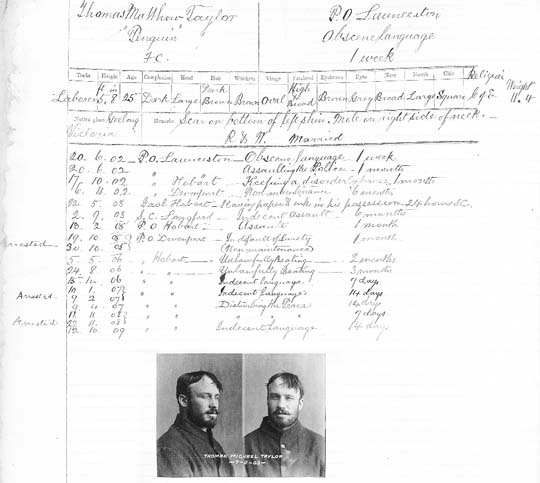 Thomas Matthew Taylor P.O. Launceston
"Penguin" Obscene language
F.C. 1 week
Trade Height Age Complexion Head Hair Whiskers Visage Forehead Eyebrows Eyes Nose Mouth Chin Religion Weight
ft in Dark High
Laborer 5. 8 25 Dark Large Brown Brown Oval Broad Brown Grey Broad Large Square C of E. 11. 4
Native place Geelong Remarks Scar on bottom of left shin. Mole on right side of neck.
Victoria R & W. Married
20. 6. 02 P.O. Launceston Obscene language 1 week
20. 6. 02 " Assaulting the Police 1 months
17. 10. 02 " Hobart Keeping a disorderly house 1 month
6. 4. 02 " Devonport Non maintenance 6 months
12. 5. 03 Gaol Hobart Having paper & ink in his possession 24 hours
2. 9. 03 S.C. Longford Indecent Assault 6 months
18. 2. 05 P.O. Hobart Assault 1 month
19. 10. 05 P.O. Devonport In default of Surety 1 month
Arrested 30. 10. 05 (Non maintenance)
5. 5. 06 " Hobart Unlawfully Beating 2 months
24. 8 06 " " Unlawfully Beating 3 months
06 " " Indecent language 7 days
10. 1. 07 " " Indecent Language 14 days
Arrested 9 2 07 " " Disturbing the Peace 14 days
9. 4. 07 " "
11. 11 " " 7 days
Arrested 27. 11.
12. 10. 09 " " Indecent Language 14 day
THOMAS MICHAEL TAYLOR